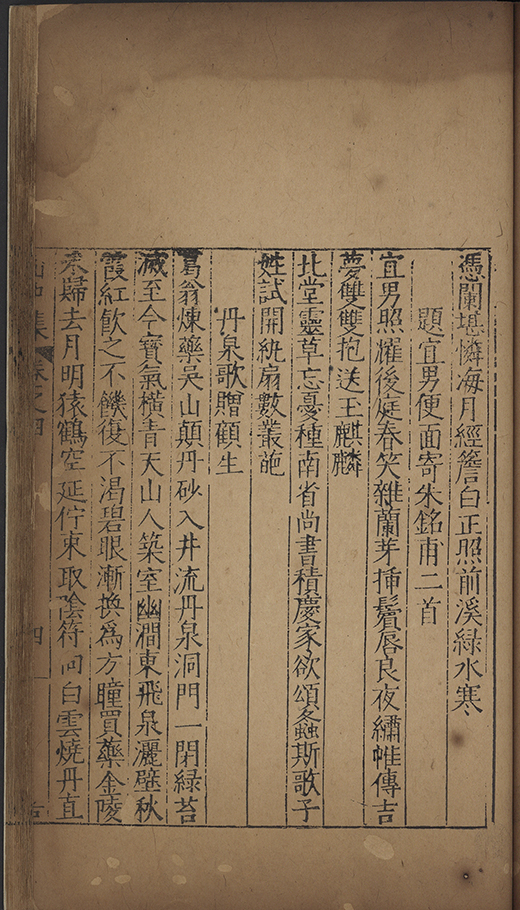 憑闌堪憐海月經簷白正照前溪綠水寒
題宜男便面寄朱銘甫二首
宜男照耀後庭春笑雜蘭芽揷鬢唇良夜繡帷傳吉
夢雙雙抱送玉麒麟
北堂靈草忘憂種南省尚書積慶家欲頌螽斯歌子
姓試開紈扇數叢葩
丹泉歌贈顧生
葛翁煉藥吳山顛丹砂入井流丹泉洞門一閉綠苔
滅至今寶氣橫青天山人築室幽澗東飛泉灑壁秋
霞紅飲之不饑復不渴碧眼漸換爲方瞳買藥金陵
未歸去月明猿鶴空延佇東取陰符向白雲燒丹直
集 卷之四
四